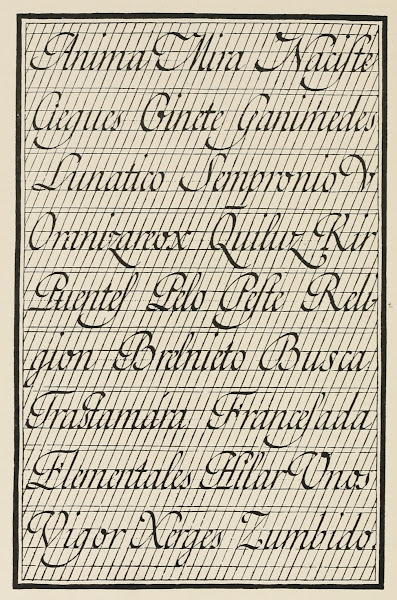 Anima Mira Naciſte
Ciegues Ginete Ganimedes
Lunatico Sempronio V
Oranizareox Quiluz Kir
Puenteſ Pelo Peſte Reli-
gion Brelnieto Busca
Traſtamára Franceſada
Elementales Hilar Unos
Vigor Xerges Zumbido.